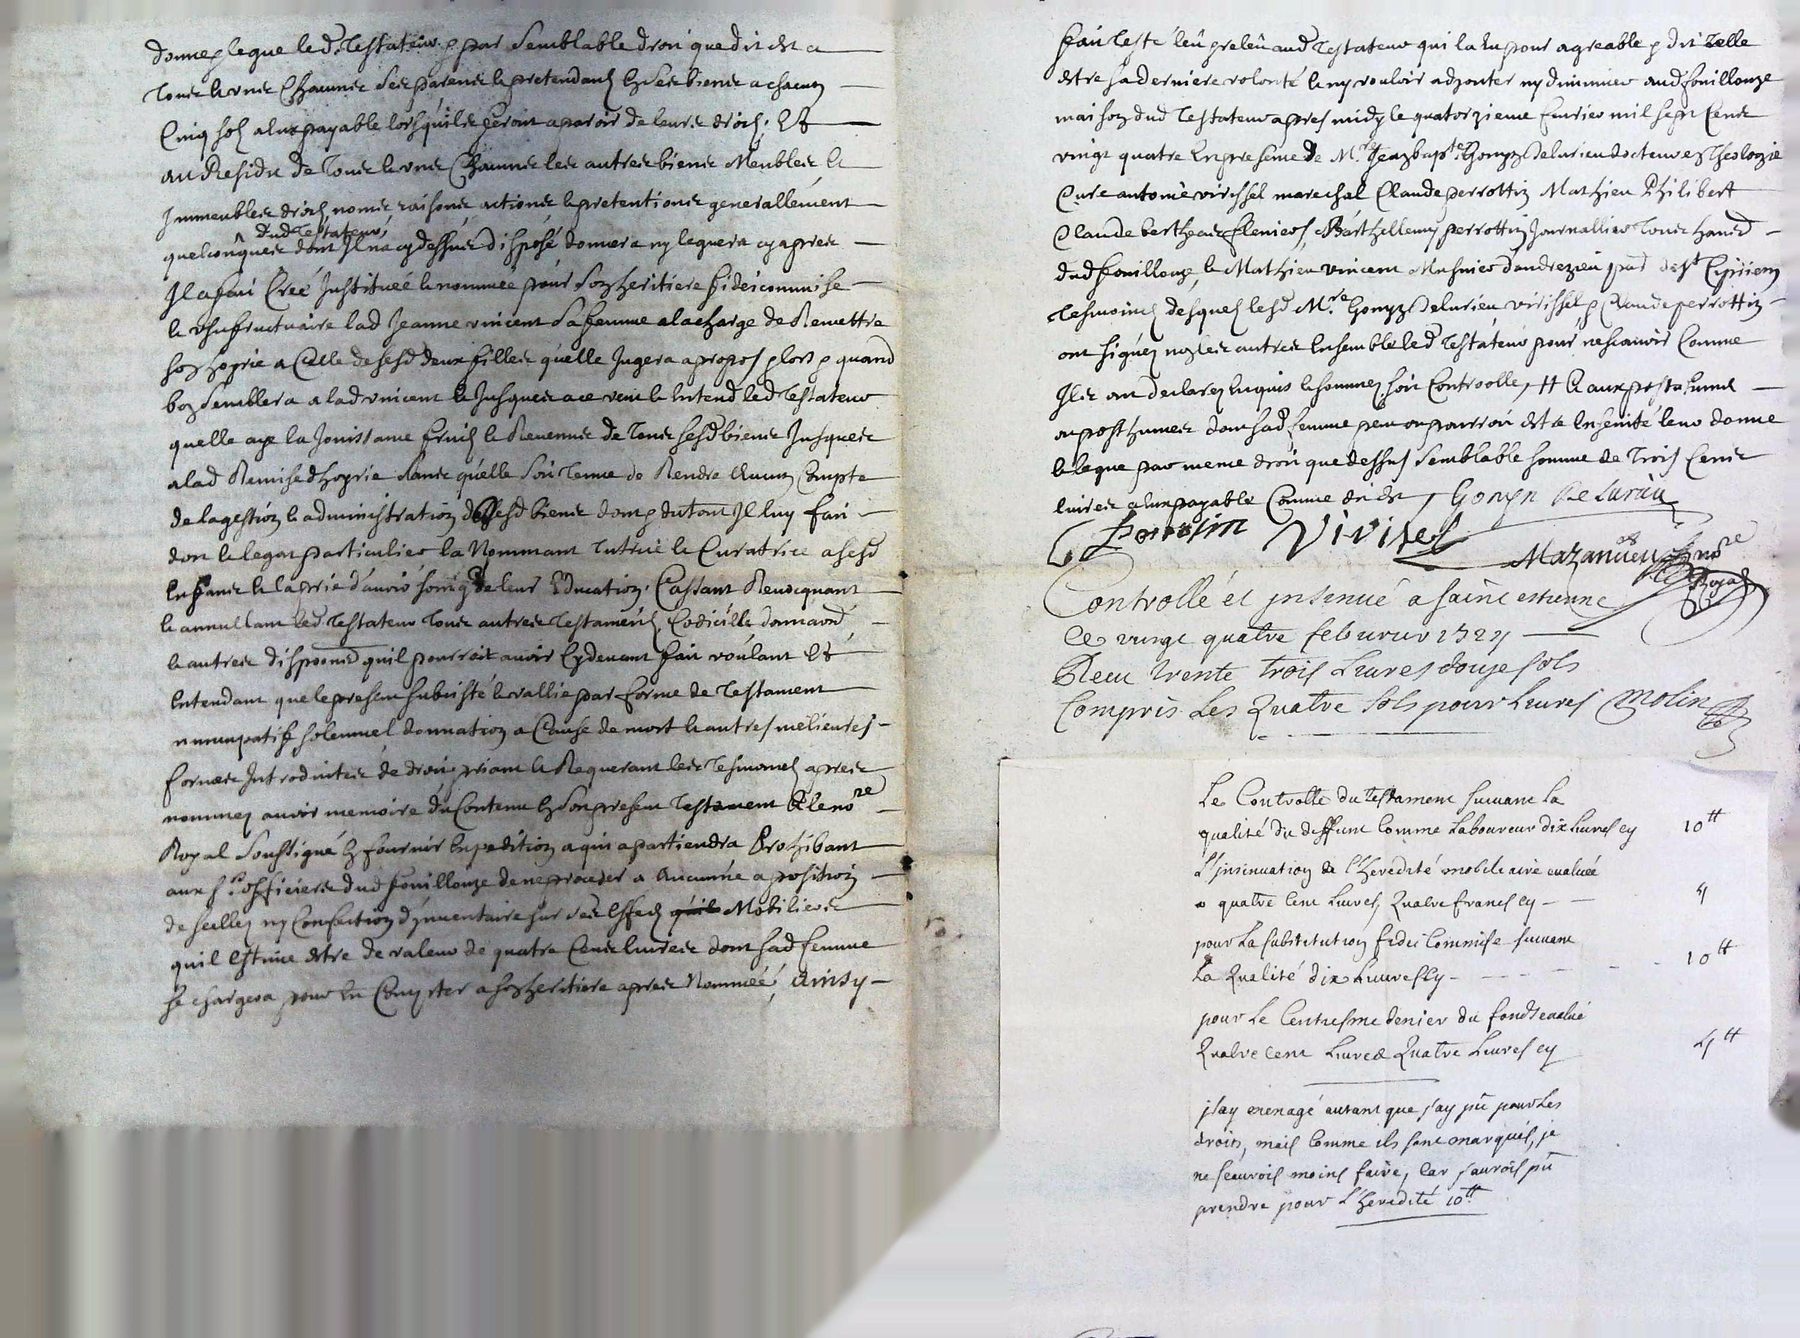 donne & legue led. Testateur & par semblable droit que dit est a
tous & uns chacuns ses parents & pretendants en ses biens a chacun
Cinq sols a lux payable lorsquils feront aparoir de leurs droits; Et
au Residu de tous & uns chacuns les autres biens Meubles &
Immeubles droits noms raisons actions & pretentions generallement
dud Testateur
quelconques dont Il na cy dessus disposé donnera ny leguera cy apres
Il a fait Creé Instituée & nommée pour son heritiere fideicommise
& usufructuaire lad Jeanne vincent sa femme a la charge de Remettre
son hoyrie a Celle de sesd deux filles quelle Jugera a propos & lors & quand
bon semblera a lad vincent & Jusques a ce veut & Entend led Testateur
quelle aye la Jouissance fruits & Revenus de tous sesd biens Jusques
a lad Remise dhoyrie sans quelle soit tenue de Rendre Aucun Compte
de la gestion & administration de sesd biens dont & du tout Il luy fait
don & legat particulier la Nommant Tutrice & Curatrice a sesd
Enfants & la prie d'avoir soing de leur Education, Cassant Revocquant
& annullant led Testateur tous autres Testaments, Codicille donnaõns
& autres dispoõns quil pourroit avoir Cydevant fait voulant Et
Entendant que le present subsiste & vallie par forme de Testament
nuncupatif solemnel donnation a Cause de mort & autres melieures
formes Introduites de droit priant & Requerant les tesmoins apres
nommez avoir memoire du Contenu en son present Testament & le nore
Royal soussigné en fournir Expedition a qui apartiendra Prohibant
aux srs officiers dud fouillouze de ne proceder a Aucunne aposition
de scelles ny Confection d'inventaire sur ses Effects quil Mobiliers
quil Estime estre de valeur de quatre Cents livres dont sad femme
se chargera pour En Compter a son heritiere apres Nommée, Ainsy
fait testé leu & releu aud Testateur qui la Eu pour agreable & dit telle
estre sa derniere volonté & ny vouloir adjouter ny diminuer aud fouillouze
maison dud Testateur apres midy le quatorzieme fevrier mil sept Cents
vingt quatre En presence de Mre Jean bapte Gonyn Delurieu docteur en theologie
Cure antoine virissel marechal Claude perrottin Mathieu Philibert
Claude berthear Barthellemy perrottin Journallier tous habts
dud fouillouze, & Mathieu vincent Musnier dandrezieu pnt de st Cyprien
tesmoins desquels lesd Mre Gonyn Delurieu virissel & Claude perrottin
ont signez non les autres Ensemble led Testateur pour ne scavoir Comme
Ils ont declarez Enquis & sommez soit Controolle, tt & aux postume
ou posthumes dont sad femme peut ou pourroit estre Enseinte leur donne
& legue par meme droit que dessus semblable somme de trois Cents
livres a lux payable Comme dit est, Gonyn De Lurieu
Perrotin Virissel
Mazandieu nore
Royal
Controllé et jnsinué a sainc estienne
Ce vingt quatre feburier 1724
Receu trente trois Livres douze sols
Compris Les Quatre sols pour Livres Molin
Le Controlle du testament suivant la
qualité du deffunt Comme Laboureur dix Livres cy 10tt
L'jnsinuation de l'heredité mobiliaire evaluée
a quatre Cent Livres, Quatre francs cy - 4
pour La substitution fidei Commise suivant
La Qualité dix Livres Cy - 10tt
pour Le Centiesme denier du fonds evalué
Quatre cent Livres Quatre Livres cy 4tt
j'ay menagé autant que j'ay pû pour Les
droits, mais Comme ils sont marqués, je
ne scaurois moins faire, Car j'aurois pû
prendre pour L'heredité 10tt